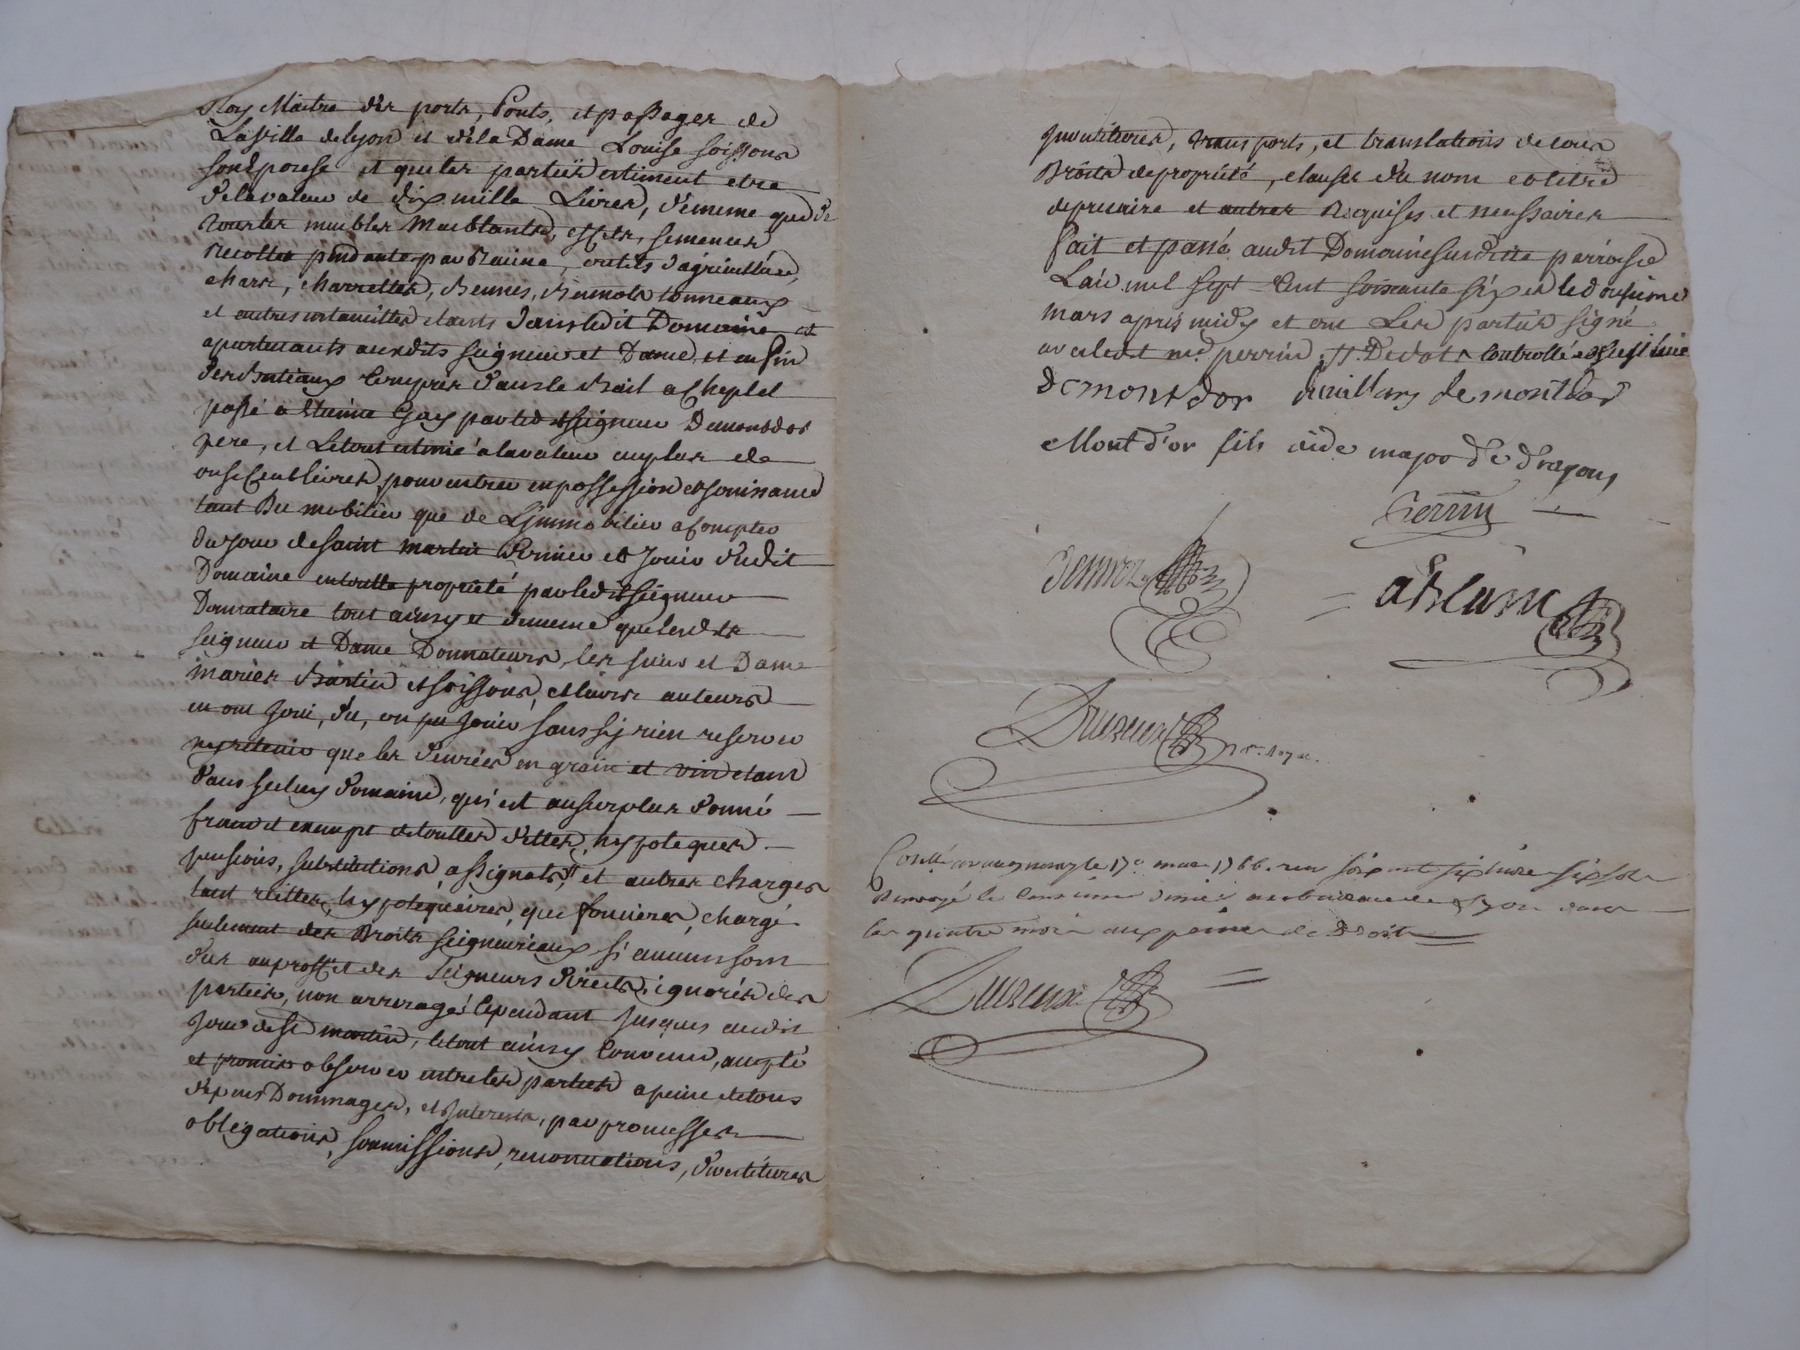 Roy Maitre des ports, Ponts, et passages de
La ville de lyon et de la Dame Louise soissons
son Epouse et que les parties estiment etre
de la valeur de dix mille Livres, de meme que de
tous les meubles Meublants, effets, semences
Recoltes pendantes par Racine, outils d'agriculture,
chars, charrettes, Bennes, Bennots tonneaux
et autres ustancilles etants dans ledit Domaine et
apartenants auxdits seigneur et Dame, et enfin
des Bestiaux compris dans le Bail a Cheptel
passé à Etienne Gay par ledit seigneur Demontdor
pere, et Le tout estimé à la valeur en plus de
onse Cent livres, pour entrer en possession et jouissance
tant Du mobilier que de L'jmmobilier a compter
du jour de saint martin dernier et Jouir dudit
Domaine en toutte propriété par ledit seigneur
Donnataire tout ainsy et de meme que lesdits
seigneur et Dame Donnateurs, les sieur et Dame
mariés et soissons, et leurs auteurs
en ont Joui, du, ou pu Jouir sans sy rien reserver
ny retenir que les denrées en grain et vin etant
dans celuy Domaine, qui est au surplus donné
franc et exempt de touttes dettes, hypoteques
pensions, substitutions, assignats, et autres charges
tant reelles, hypotequaires, que foncieres, chargé
seulement des Droits seigneuriaux si aucuns sont
dus au proffit des seigneurs directs, ignorés des
parties, non arreragés cependant jusques audit
jour de st martin, le tout ainsy convenu, accepté
et promis observer entre les parties a peine de tous
depens Dommages, et Interests, par promesses
obligations, soumissions, renonciations, devestitures
jnvestitures, transports, et translations de tous
Droits de proprieté, clauses du nom et titre
de precaire et autres Requises et necessaires
fait et passé audit Domaine susditte parroisse
L'an mil sept Cent soixante six et le dousieme
mars apres midy et ont Les parties signé
avec ledit me perrin Controllé
Demontdor de montbar
Mont d'or fils aide major de dragons
Perrin
ablanc
le 17e mars 1766. reçu six livres six sols
Renvoyé le Centieme denier au bureau de Lyon dans
les quatre mois aux peines de Droit